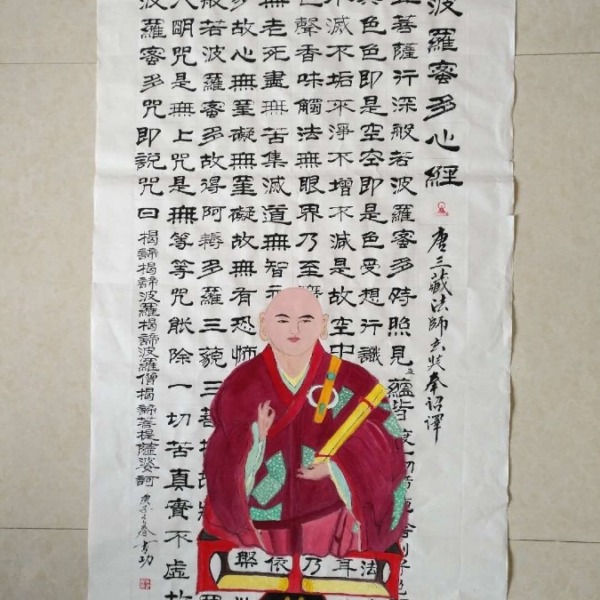 波羅蜜多心經
唐三藏法師玄奘奉詔譯
菩薩行深般若波羅蜜多時照見五蘊皆
異色色即是空空即是色受想行識
不滅不垢不淨不增不減是故空中
色聲香味觸法無眼界乃至無
無老死盡無苦集滅道無智
多故心無罣礙無罣礙故無有恐怖
般若波羅蜜多故得阿耨多羅三藐三菩提故
大明咒是無上咒是無等等咒能除一切苦真實不虛故
波羅蜜多咒即說咒曰
揭諦揭諦波羅揭諦波羅僧揭諦菩提薩婆訶